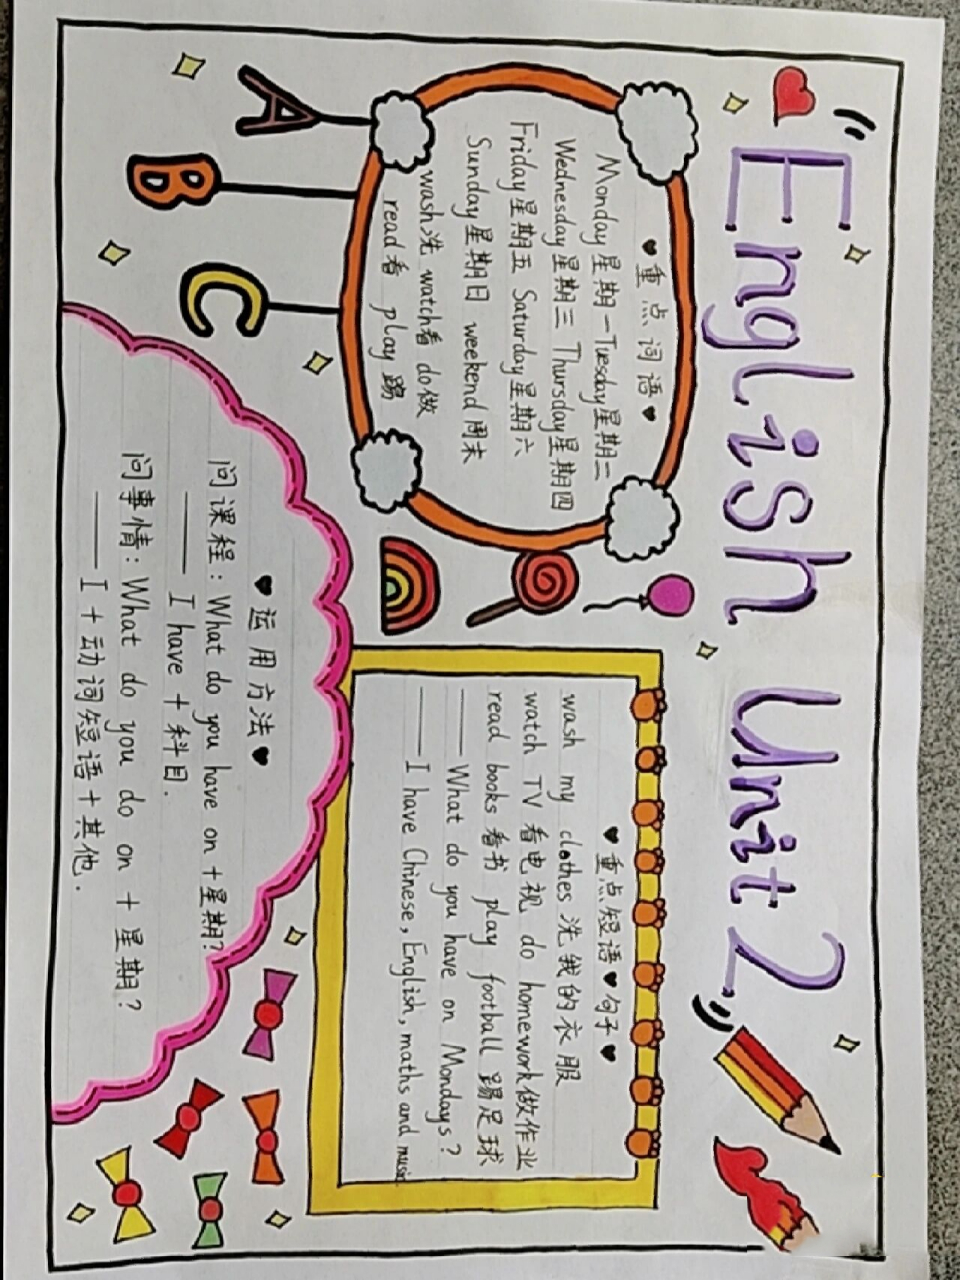 English Unit 2
♥重点词语♥
Monday星期一Tuesday星期二
Wednesday星期三 Thursday星期四
Friday星期五 Saturday星期六
Sunday星期日 weekend周末
wash洗 watch看 do做
read看 play踢
A
B
C
♥重点短语♥句子♥
wash my clothes 洗我的衣服
watch TV 看电视 do homework做作业
read books看书 play football 踢足球
—— What do you have on Mondays?
—— I have Chinese, English, maths and music.
♥运用方法♥
问课程: What do you have on +星期?
—— I have + 科目.
问事情: What do you do on + 星期?
—— I + 动词短语+其他.